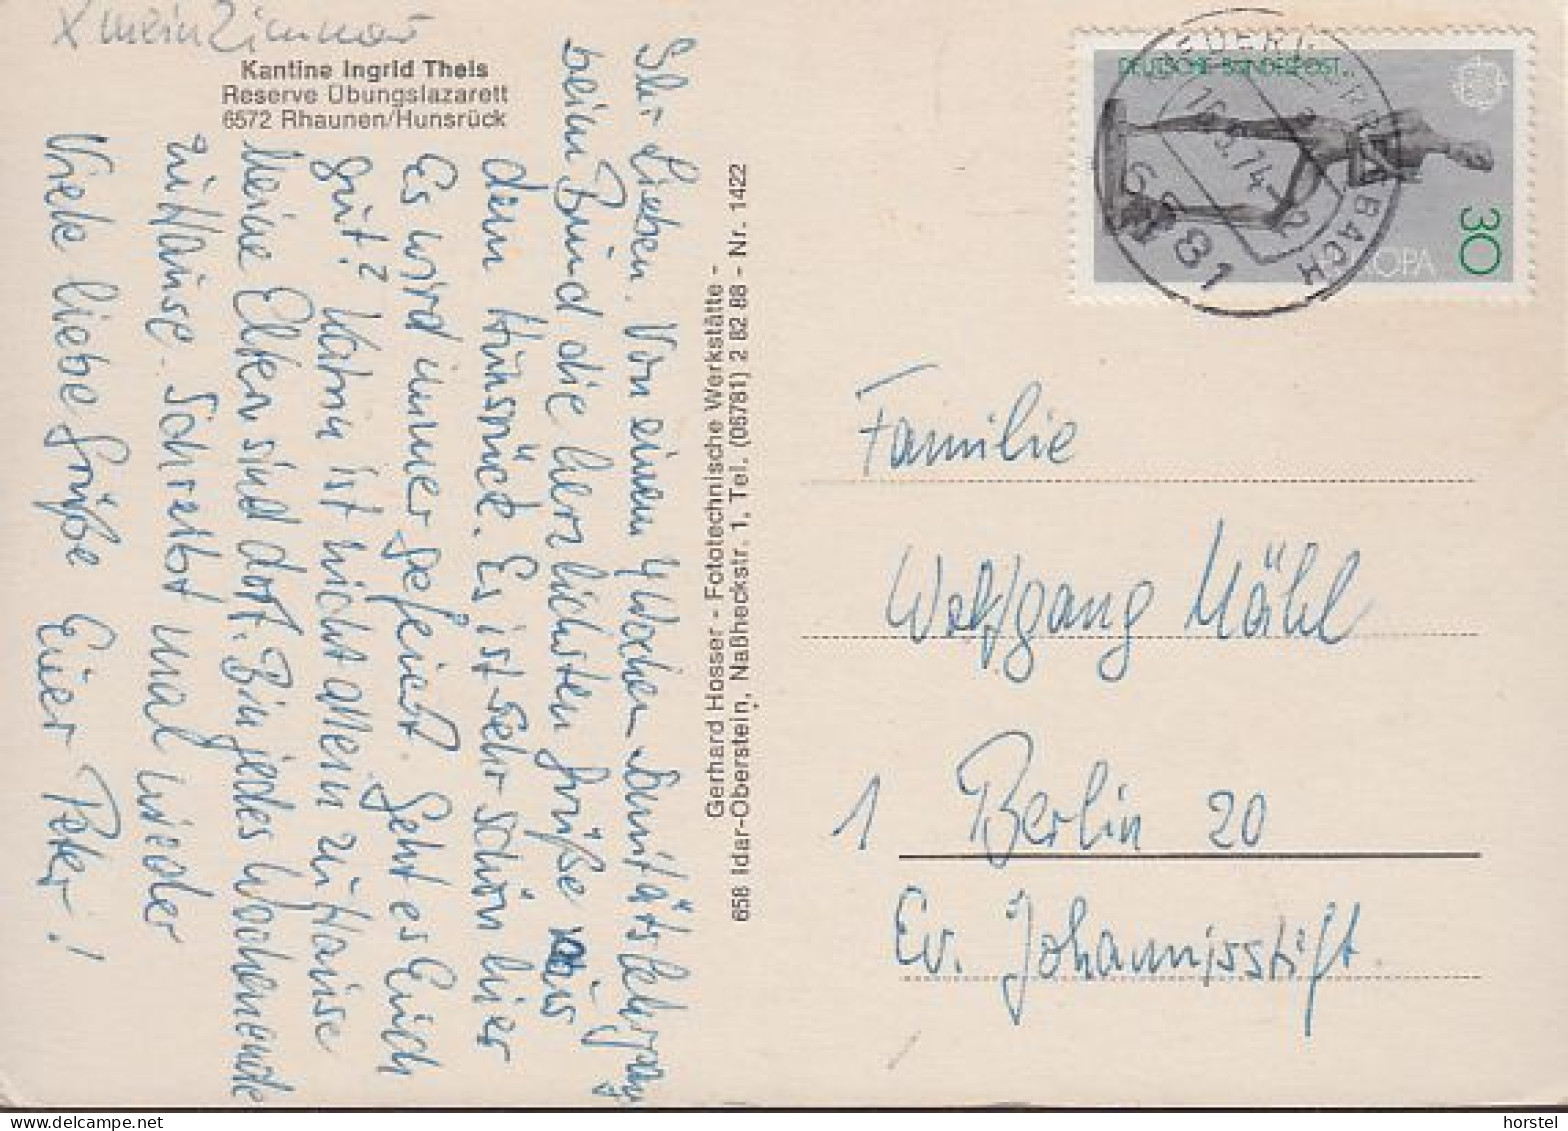 x mein Zimmer
Kantine Ingrid Theis
Reserve Übungslazarett
6572 Rhaunen/Hunsrück
Ihr Lieben. Von einem 4 Wochen Sanitätslehrgang
beim Bund die herzlichsten Grüße aus
dem Hunsrück. Es ist sehr schön hier
Es wird immer gefeiert. Geht es Euch
gut? Katrin ist nicht allein zu Hause
Meine Eltern sind dort. Bin jedes Wochenende
zu Hause. Schreibt mal wieder
Viele liebe Grüße Euer Peter!
Gerhard Hosser - Fototechnische Werkstätte -
658 Idar-Oberstein, Naßheckstr. 1, Tel. (06781) 2 82 88 - Nr. 1422
DEUTSCHE BUNDESPOST
30
EUROPA
BACH
6581
Familie
Wolfgang Mähl
1 Berlin 20
Ev. Johannisstift.